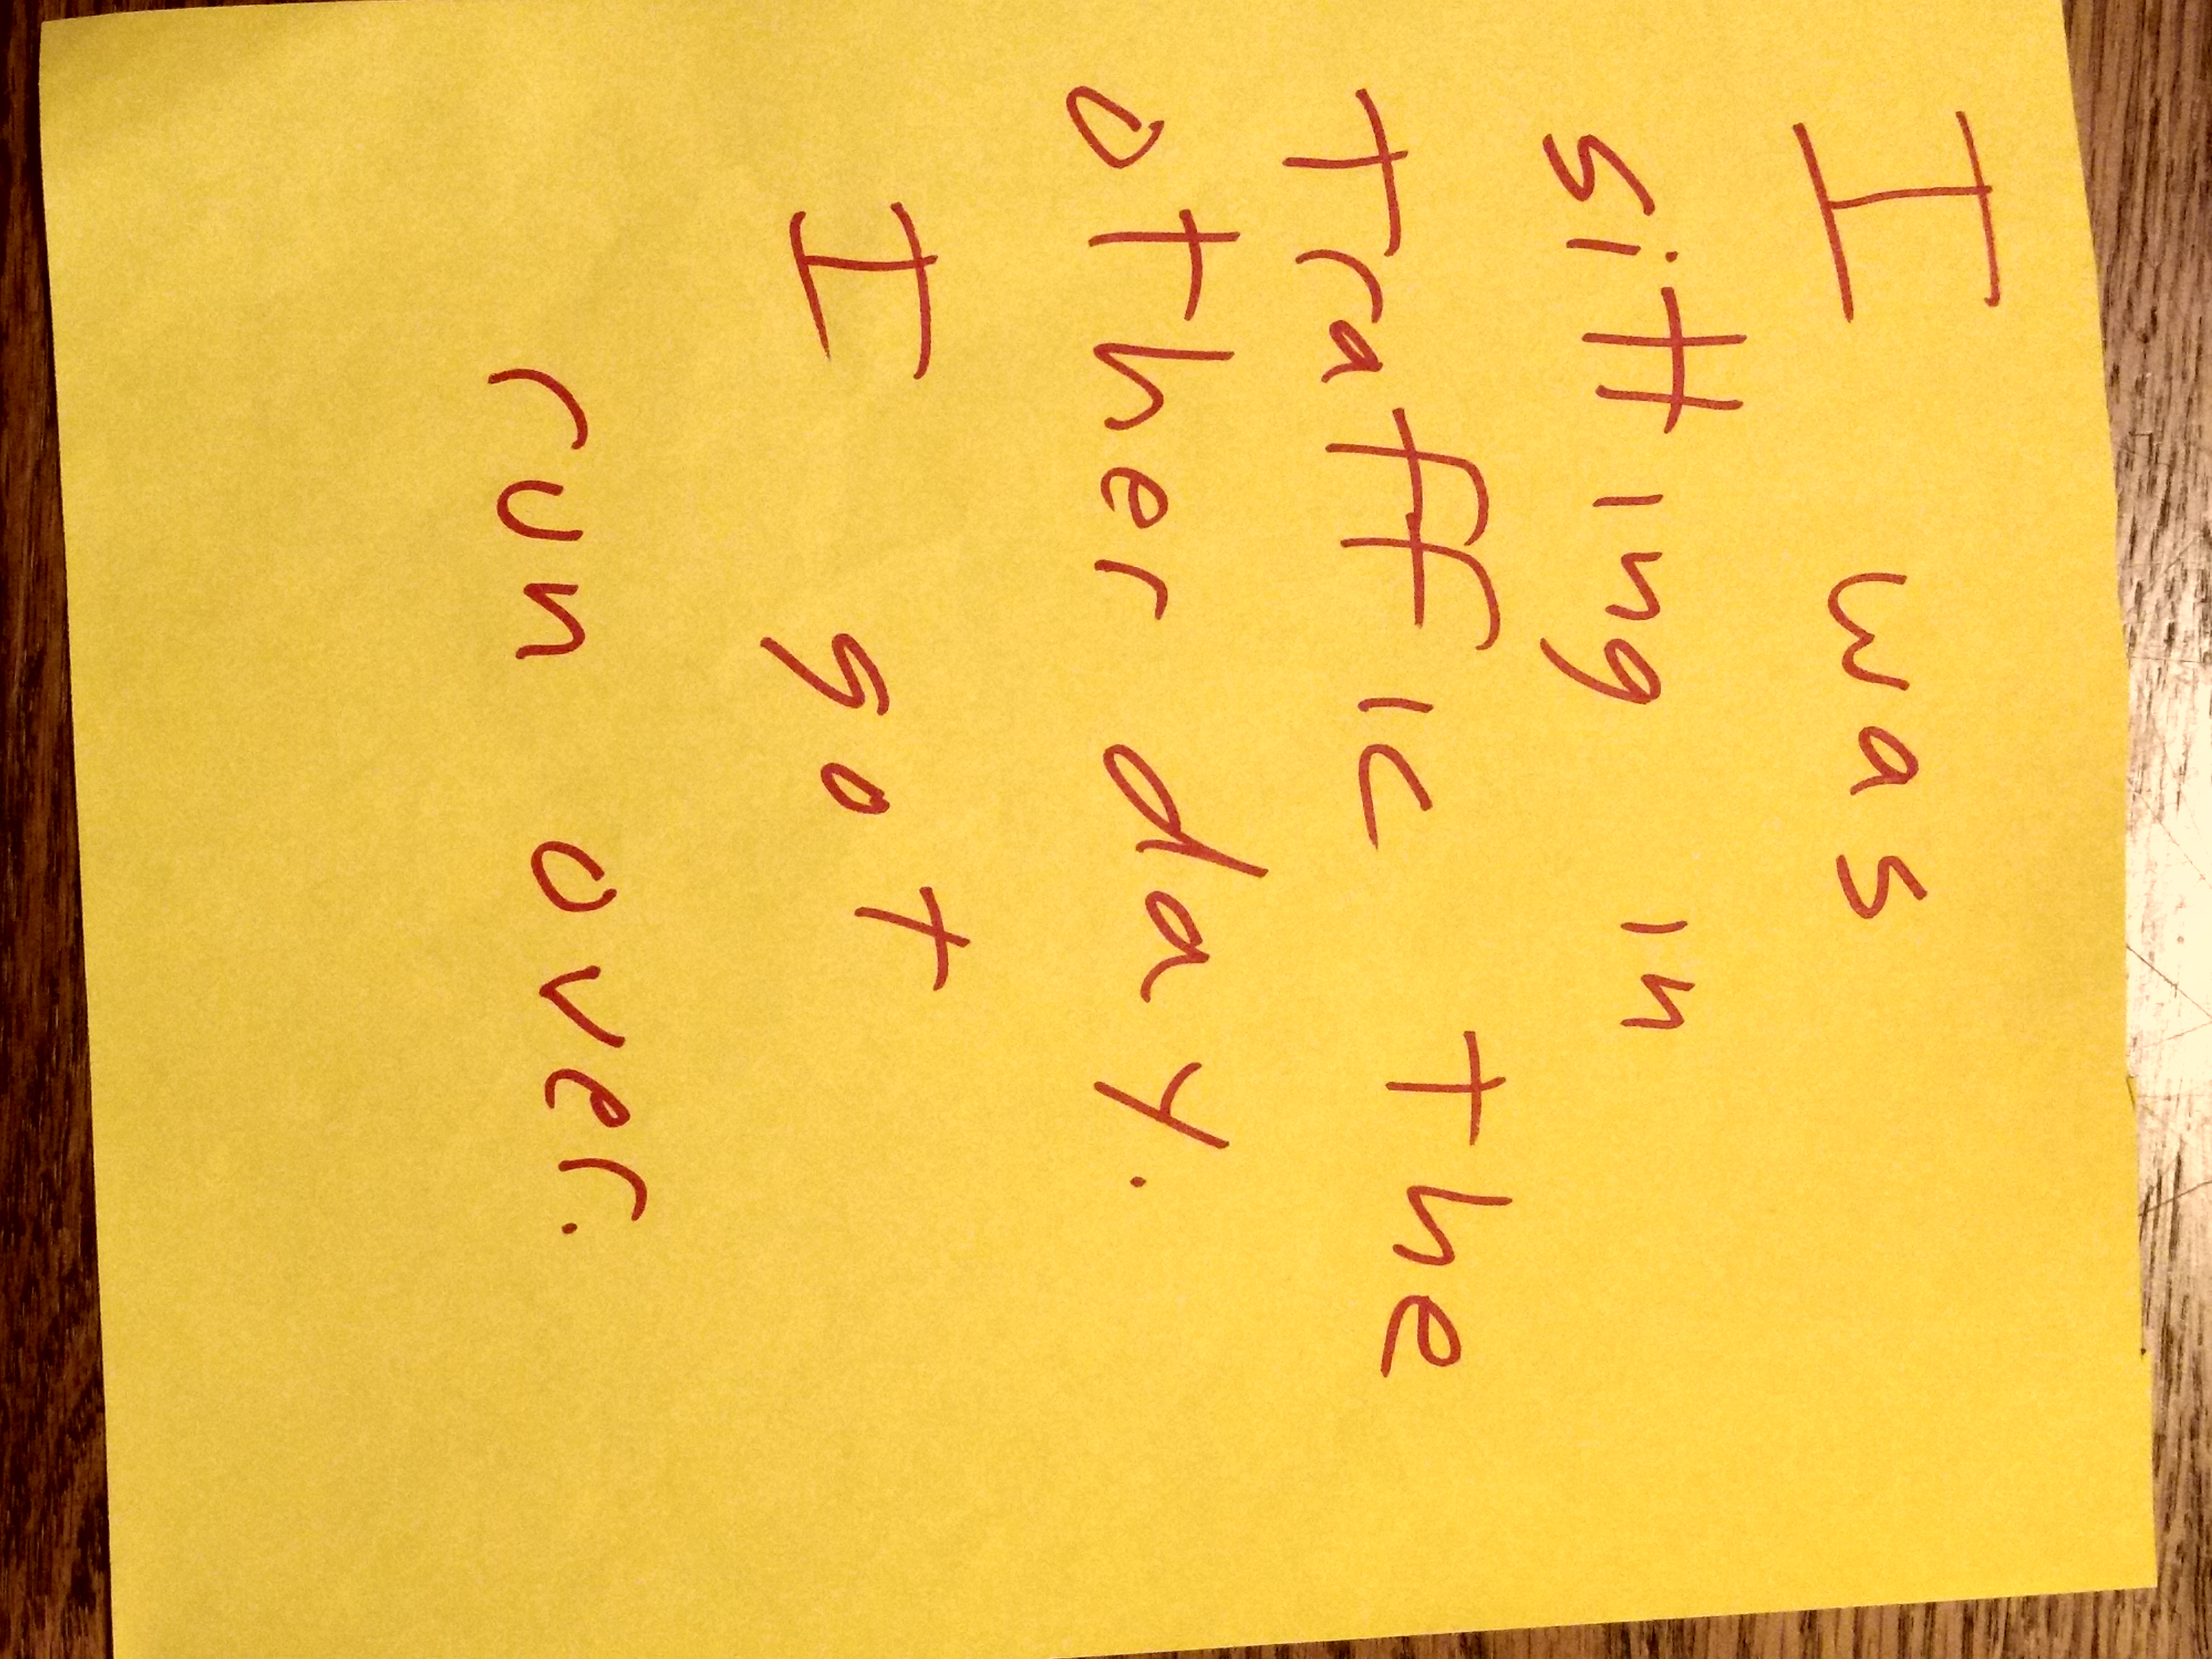 I was
sitting in
Traffic the
other day.
I got
run over.